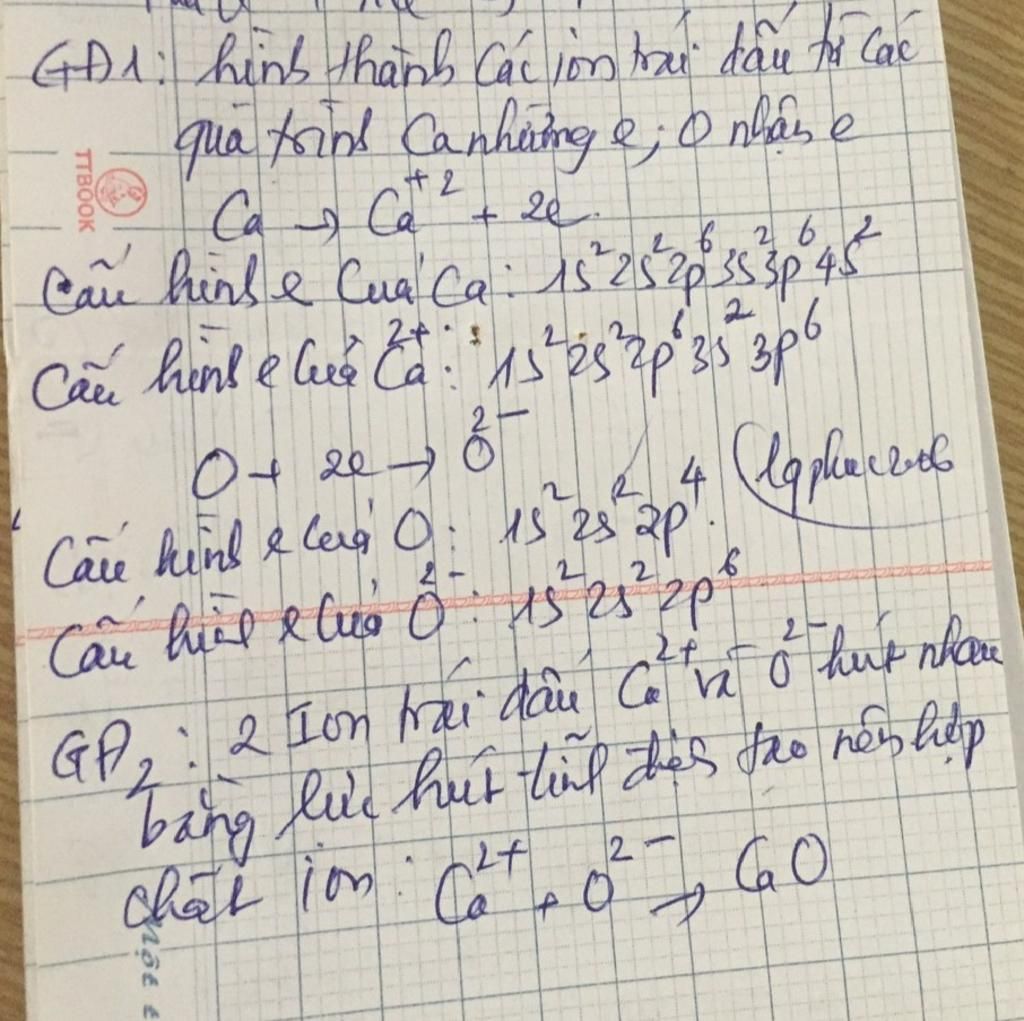 GĐ1: hình thành các ion trái dấu từ các
quá trình Ca nhường e; O nhận e
TTBOOK
Ca → Ca⁺² + 2e.
Cấu hình e của Ca: 1s²2s²2p⁶3s²3p⁶4s²
Cấu hình e của Ca²⁺: 1s²2s²2p⁶3s²3p⁶
O + 2e → O²⁻
Cấu hình e của O: 1s²2s²2p⁴.
Cấu hình e của O²⁻: 1s²2s²2p⁶
GĐ₂: 2 Ion trái dấu Ca²⁺ và O²⁻ hút nhau
bằng lực hút tĩnh điện tạo nên hợp
chất ion: Ca²⁺ + O²⁻ → CaO